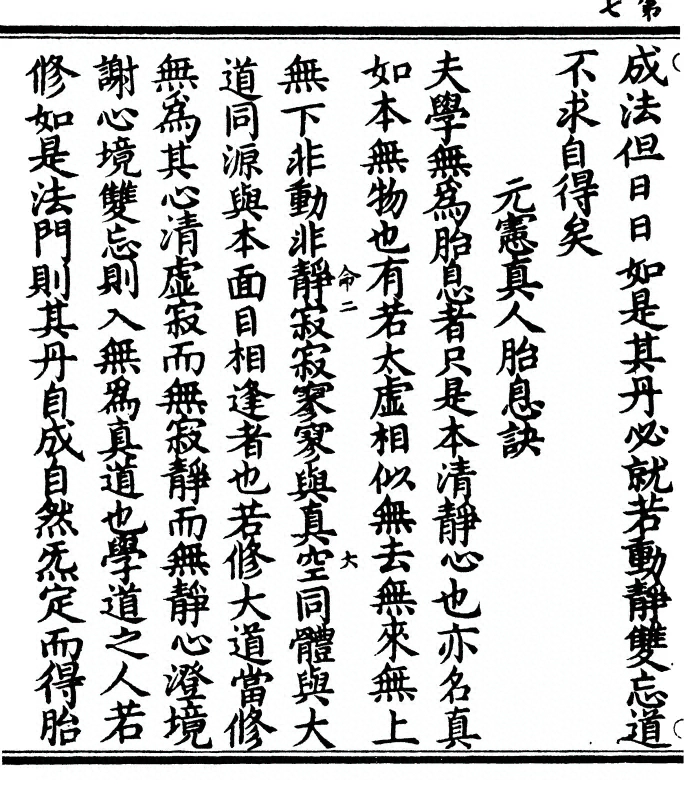 第七
成法但日日如是其丹必就若動靜雙忘道
不求自得矣
元憲真人胎息訣
夫學無爲胎息者只是本清靜心也亦名真
如本無物也有若太虛相似無去無來無上
無下非動非靜寂寂寥寥與真空同體與大
命二
大
道同源與本面目相逢者也若修大道當修
無爲其心清虛寂而無寂靜而無靜心澄境
謝心境雙忘則入無爲真道也學道之人若
修如是法門則其丹自成自然炁定而得胎